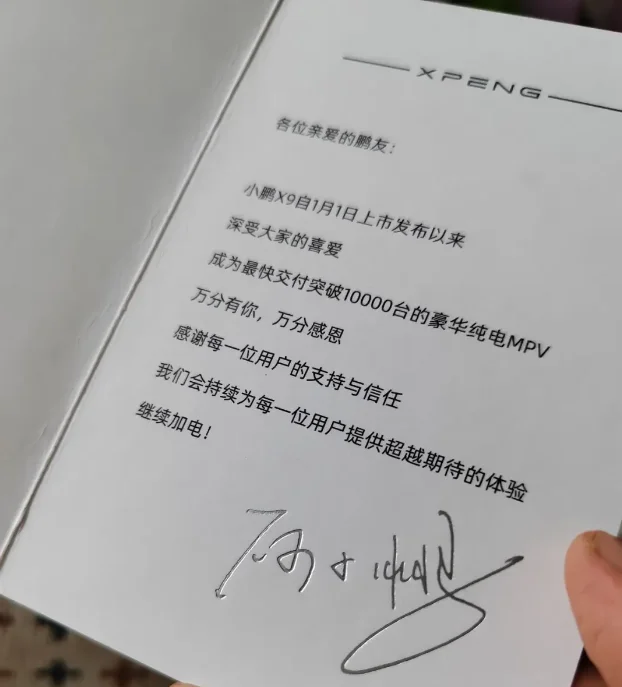 XPENG
各位亲爱的鹏友：
小鹏X9自1月1日上市发布以来
深受大家的喜爱
成为最快交付突破10000台的豪华纯电MPV
万分有你，万分感恩
感谢每一位用户的支持与信任
我们会持续为每一位用户提供超越期待的体验
继续加电！